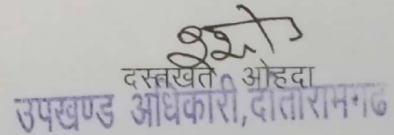 दस्तखत ओहदा
उपखण्ड अधिकारी,दांतारामगढ